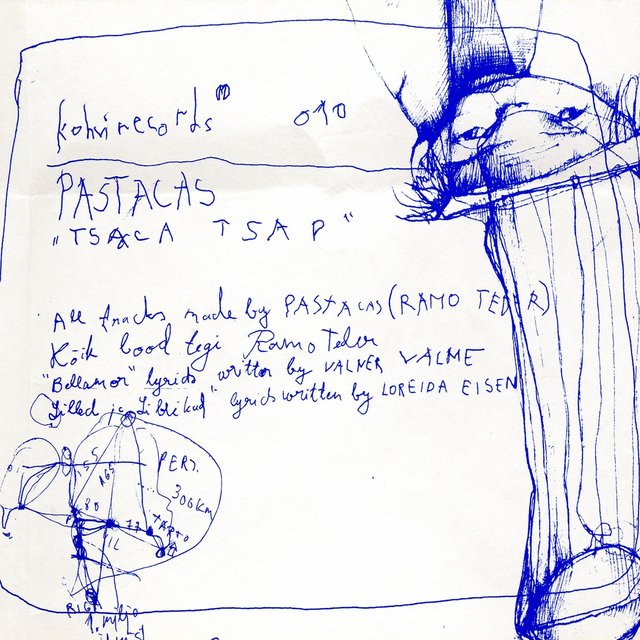 kohvirecords 010
PASTACAS
"TSACA TSAP"
All tracks made by PASTACAS (RAMO TEDER)
Kõik lood tegi Ramo Teder
"Bellamor" lyrics written by VALNER VALME
Lilled ja Librikud" lyrics written by LOREIDA EISEN
55
165
PERS.
300KM
80
77
TARTO
VIL
RIGA
1. miljo